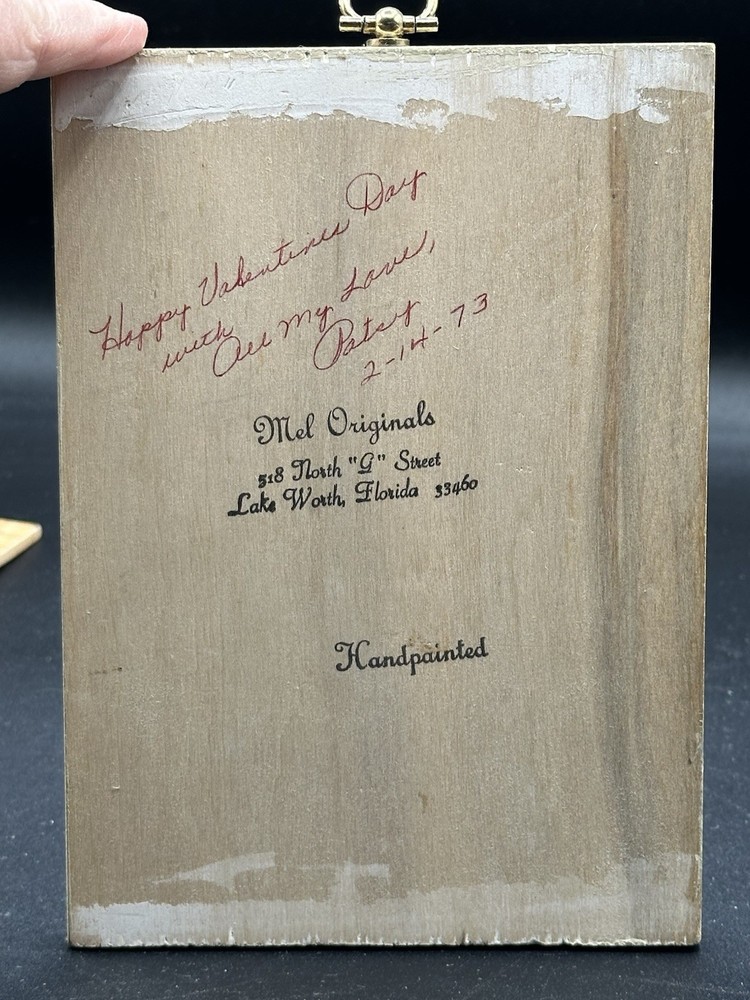 Happy Valentines Day
with All My Love,
Patsy
2-14-73
Mel Originals
518 North "G" Street
Lake Worth, Florida 33460
Handpainted